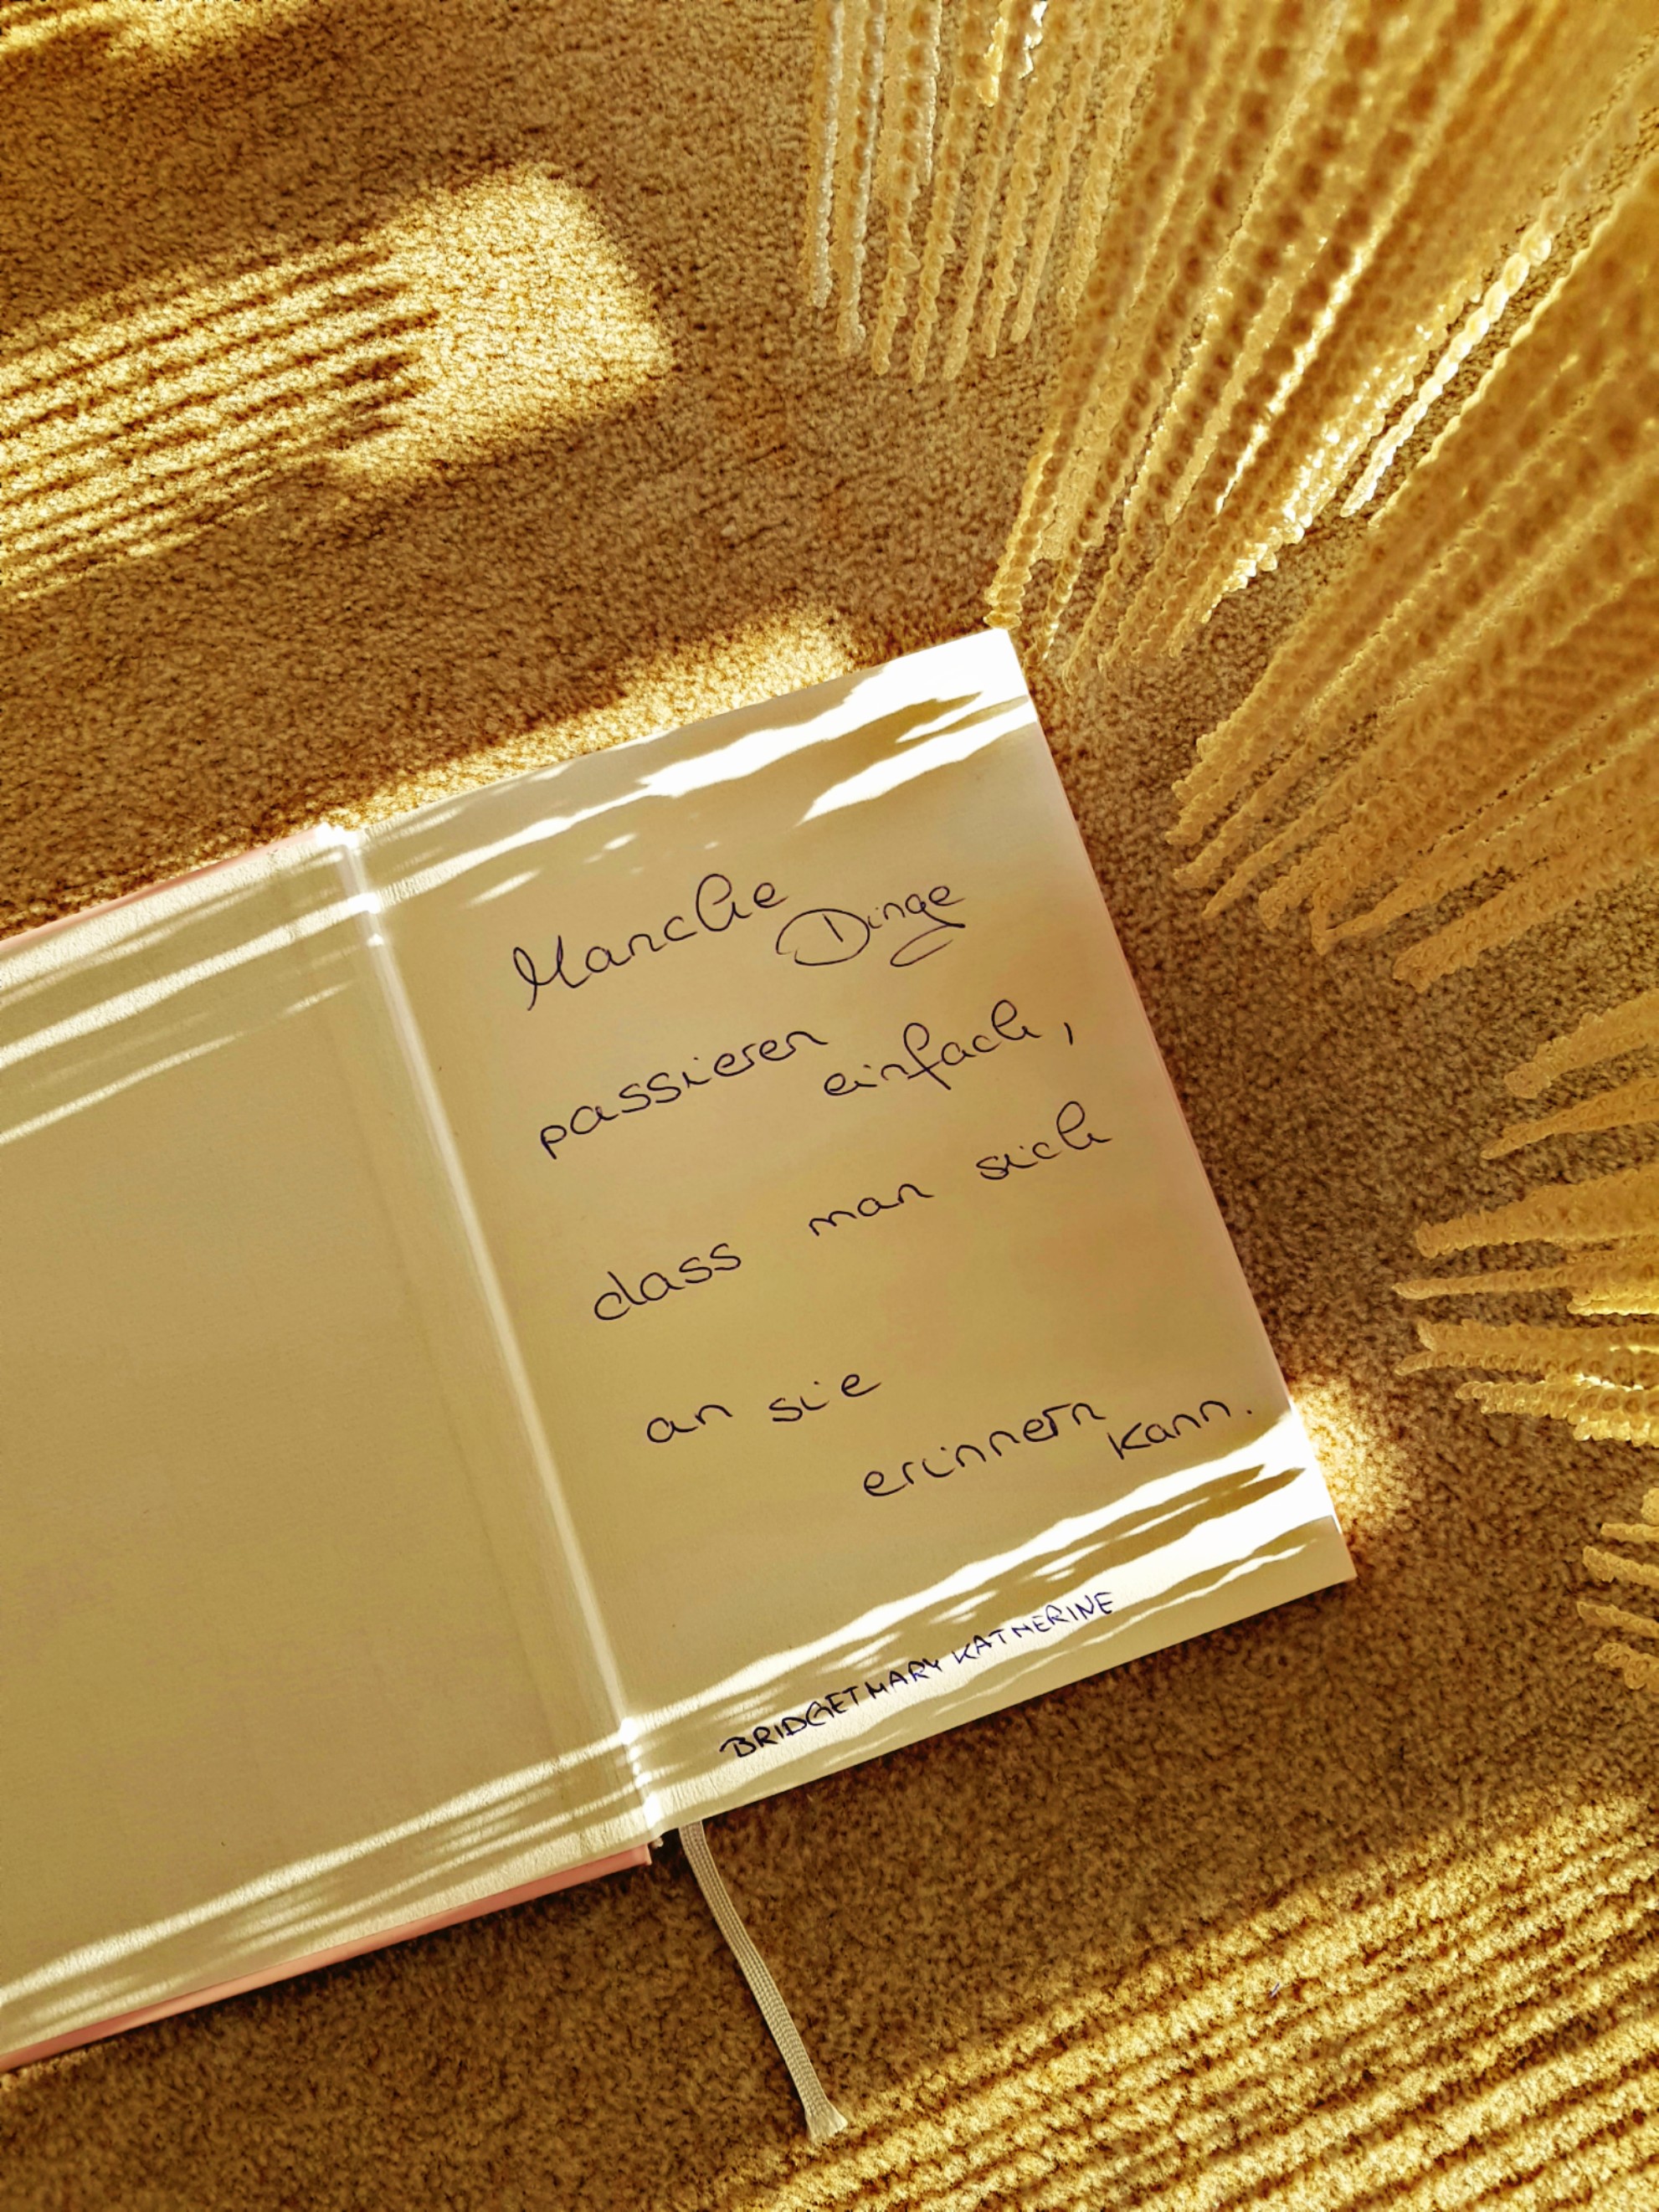 Manche Dinge
passieren einfach,
dass man sich
an sie
erinnern kann.
BRIDGETMARY KATHERINE